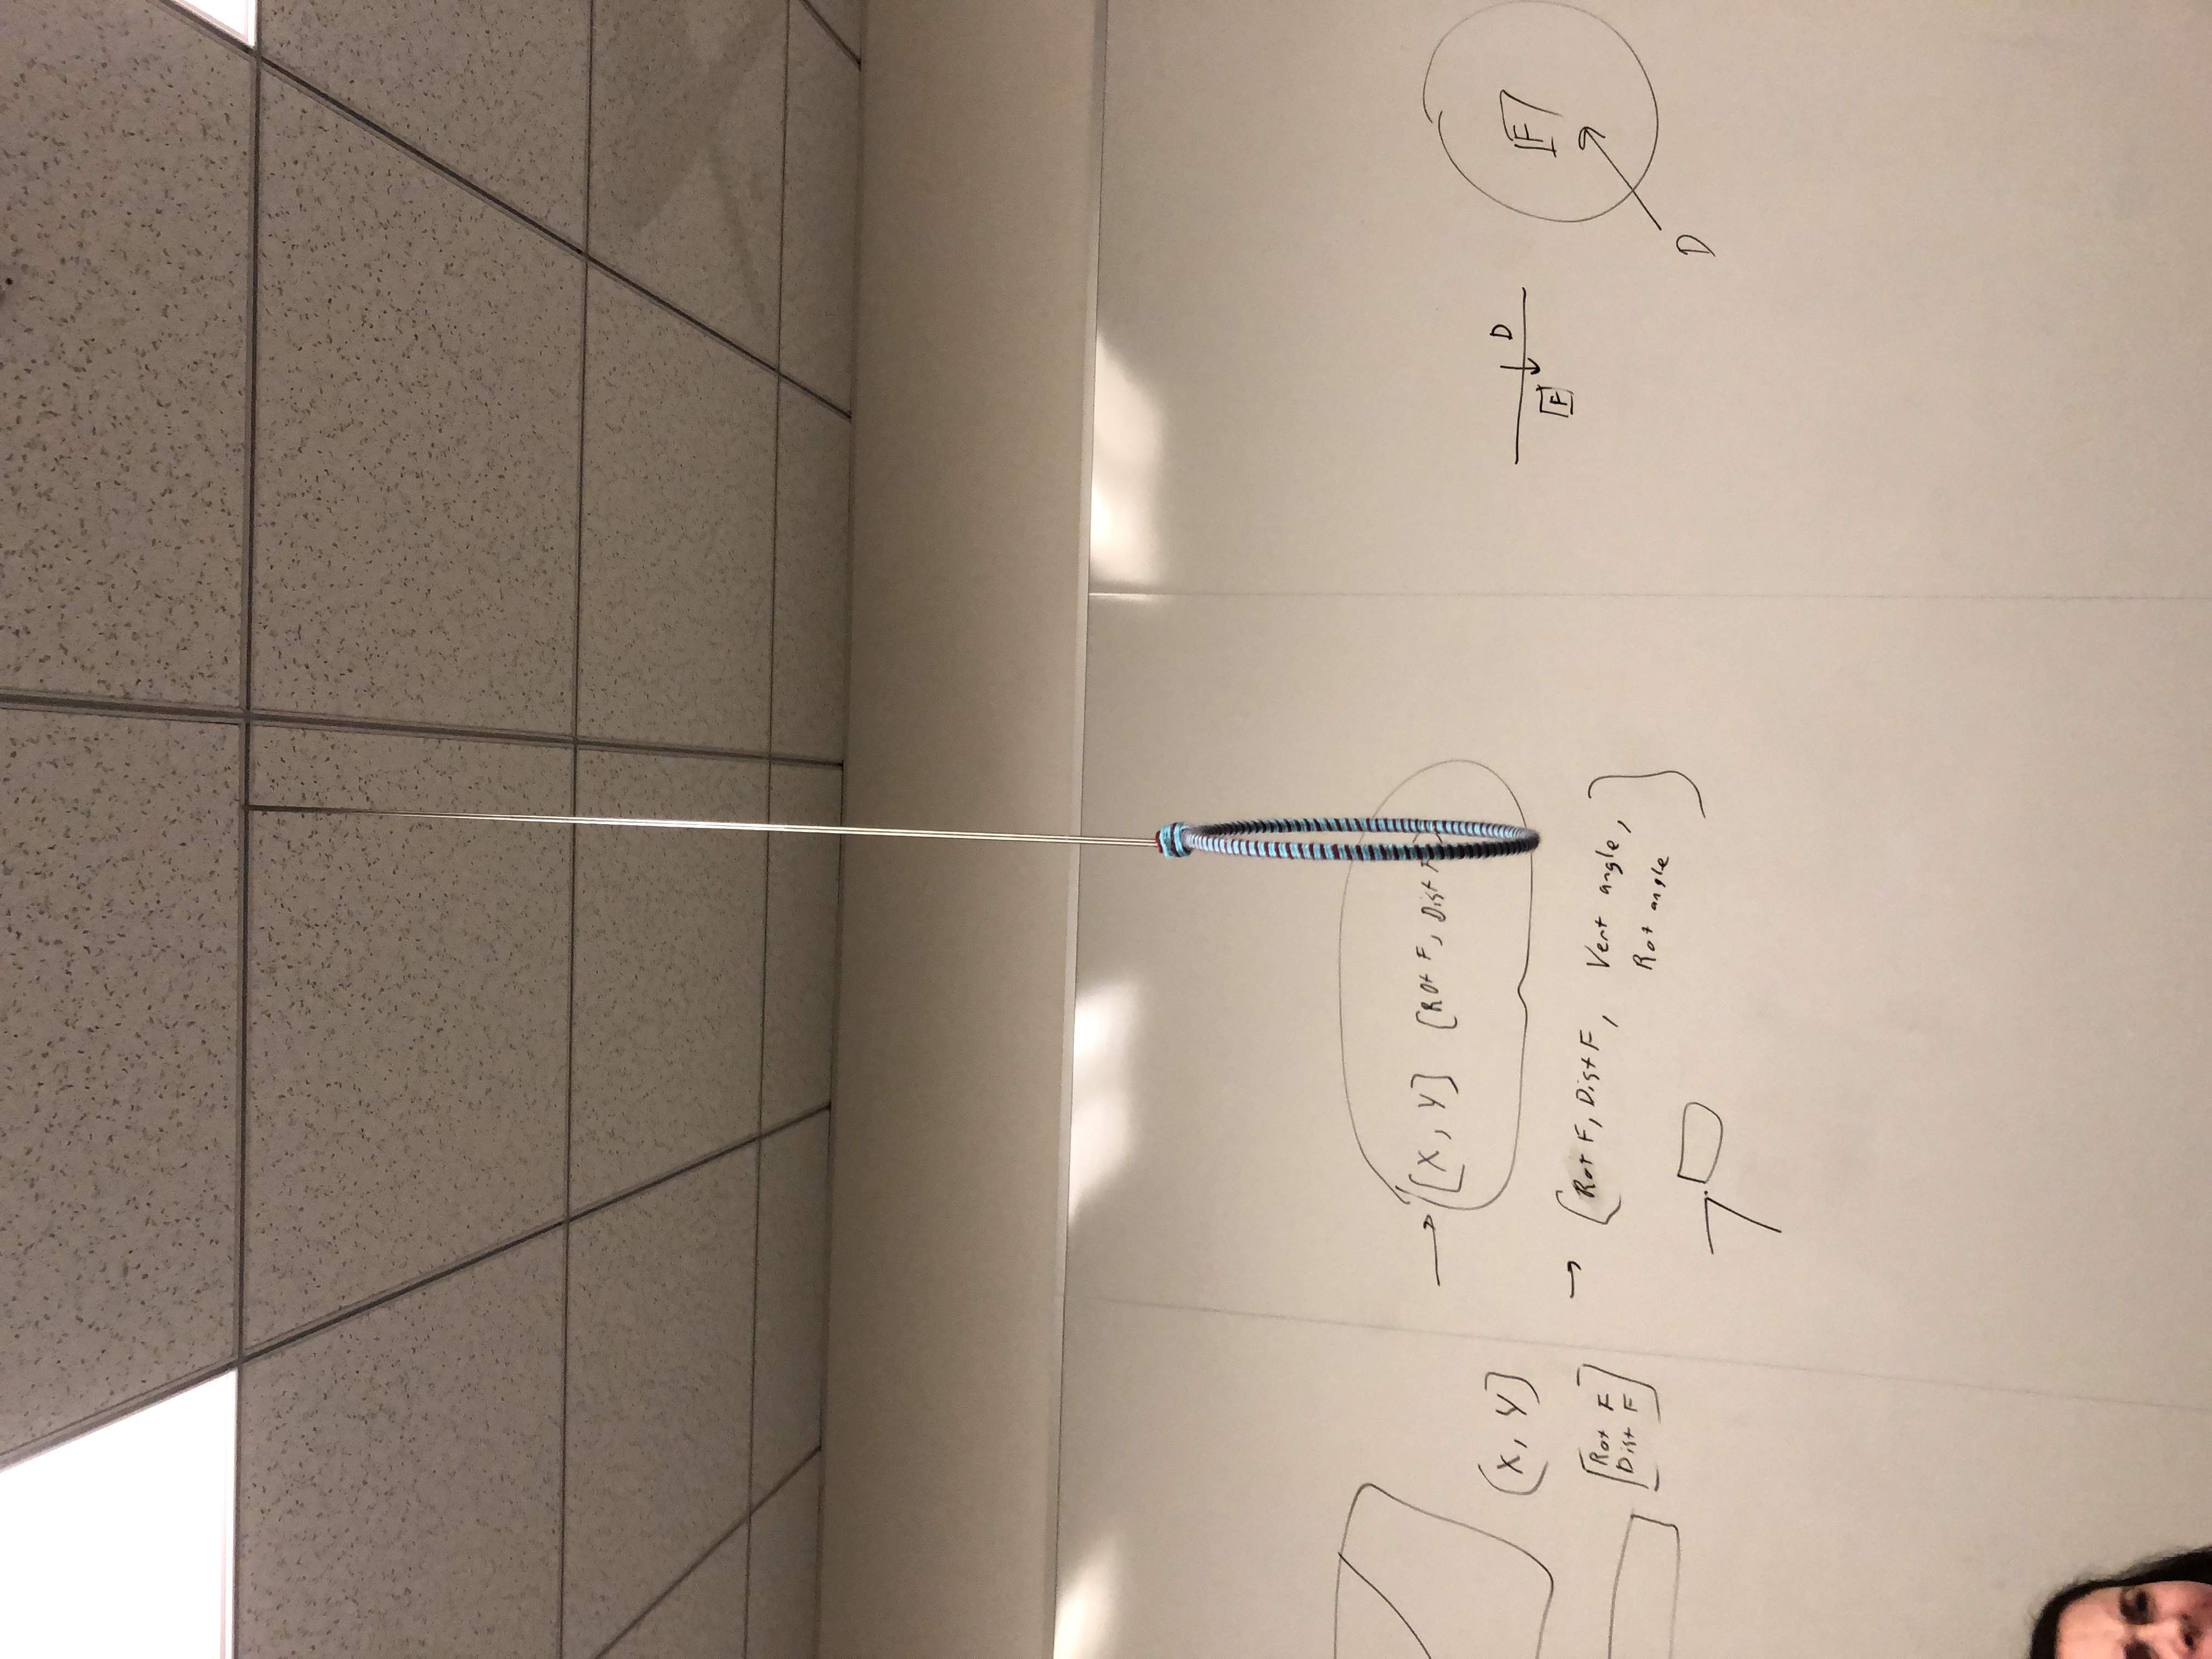 [X, Y] [Rot F, Dist F]
[X, Y]
[Rot F
Dist F]
[Rot F, Dist F, Vert angle,
Rot angle]
D
F
F
D